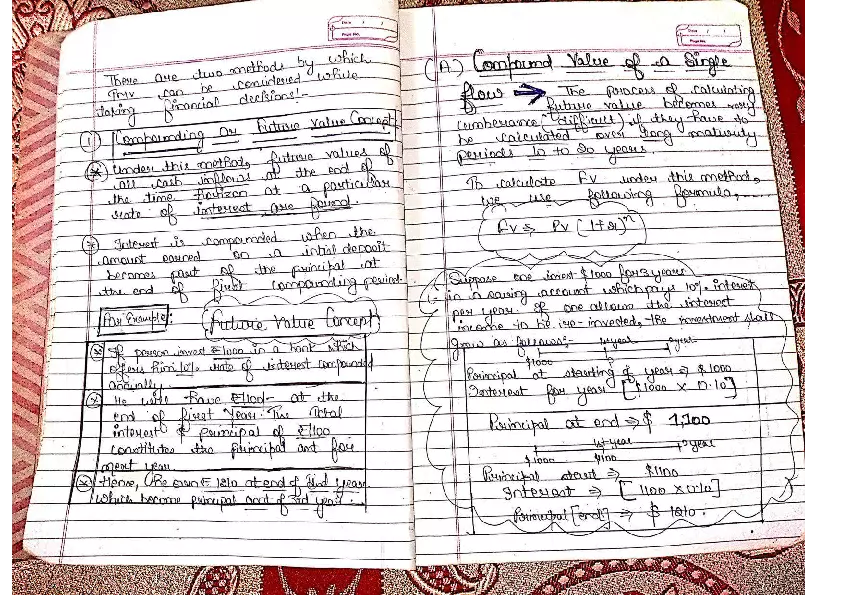 Date / /
Page No.
There are two methods by which
TMV can be considered while
taking financial decisions:-
1) Compounding or Future Value Concept
Under this method, future values of
all cash inflows at the end of
the time horizon at a particular
rate of interest are found.
Interest is compounded when the
amount earned on a intial deposit
becomes part of the principal at
the end of first compounding period.
For Example: Future Value Concept
If person invest ₹1000 in a bank which
offers him 10% rate of interest compounded
annually.
He will have ₹1100- at the
end of first year. The Total
interest & principal of ₹1100
constitutes the principal amt for
next year.
Hence, the sum ₹ 1210 at end of 2nd year
which become principal amt of 3rd year.
Date / /
Page No.
(A.) Compound Value of a Single
flow → The process of calculating
future value becomes very
(difficult) if they have to
be calculated over long maturity
periods 10 to 20 years.
To calculate FV under this method,
we use following formula,
FV ⇒ PV (1+r)ⁿ
Suppose one invest $1000 for 3 years
in a saving account which pays 10% interest
per year. If one allows the interest
income to be re-invested, the investment shall
grow as follows:-
1st year
$1000
Principal at starting of year ⇒ $1000
Interest for year [$1000 X 0.10]
Principal at end ⇒ $ 1,100
1st year
$1000 $1100
Principal start ⇒ $1100
Interest ⇒ [1100 X 0.10]
Principal [end] ⇒ $ 1210.